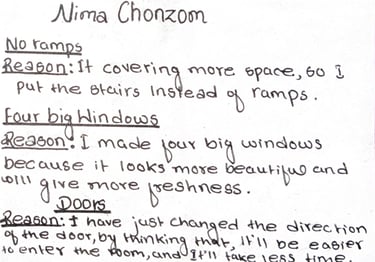 Nima Chonzom
No ramps
Reason: It covering more space, so I
put the stairs instead of ramps.
Four big Windows
Reason: I made four big windows
because it looks more beautiful and
will give more freshness.
Doors
Reason: I have just changed the direction
of the door, by thinking that, It'll be easier
to enter the room, and It'll take less time.